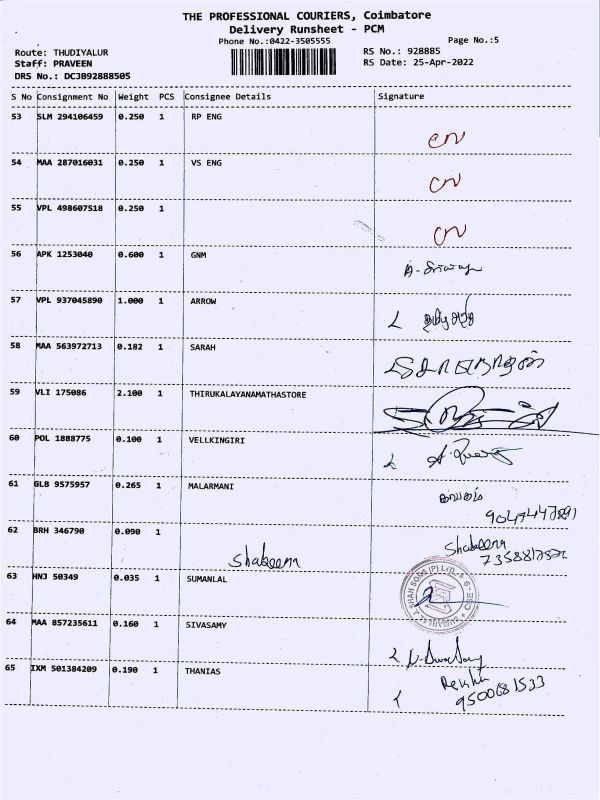 THE PROFESSIONAL COURIERS, Coimbatore
Delivery Runsheet - PCM
Phone No.:0422-3505555 Page No.:5
Route: THUDIYALUR RS No.: 928885
Staff: PRAVEEN RS Date: 25-Apr-2022
DRS No.: DCJB92888505
S No Consignment No Weight PCS Consignee Details Signature
53 SLM 294106459 0.250 1 RP ENG
54 MAA 287016031 0.250 1 VS ENG
55 VPL 498607518 0.250 1
56 APK 1253040 0.600 1 GNM
57 VPL 937045890 1.000 1 ARROW
58 MAA 563972713 0.182 1 SARAH
59 VLI 175086 2.100 1 THIRUKALAYANAMATHASTORE
60 POL 1888775 0.100 1 VELLKINGIRI
61 GLB 9575957 0.265 1 MALARMANI
62 BRH 346790 0.090 1 Shabeena Shabeena
63 HNJ 50349 0.035 1 SUMANLAL
64 MAA 857235611 0.160 1 SIVASAMY
65 IXM 501384209 0.190 1 THANIAS Rekha
9500681533